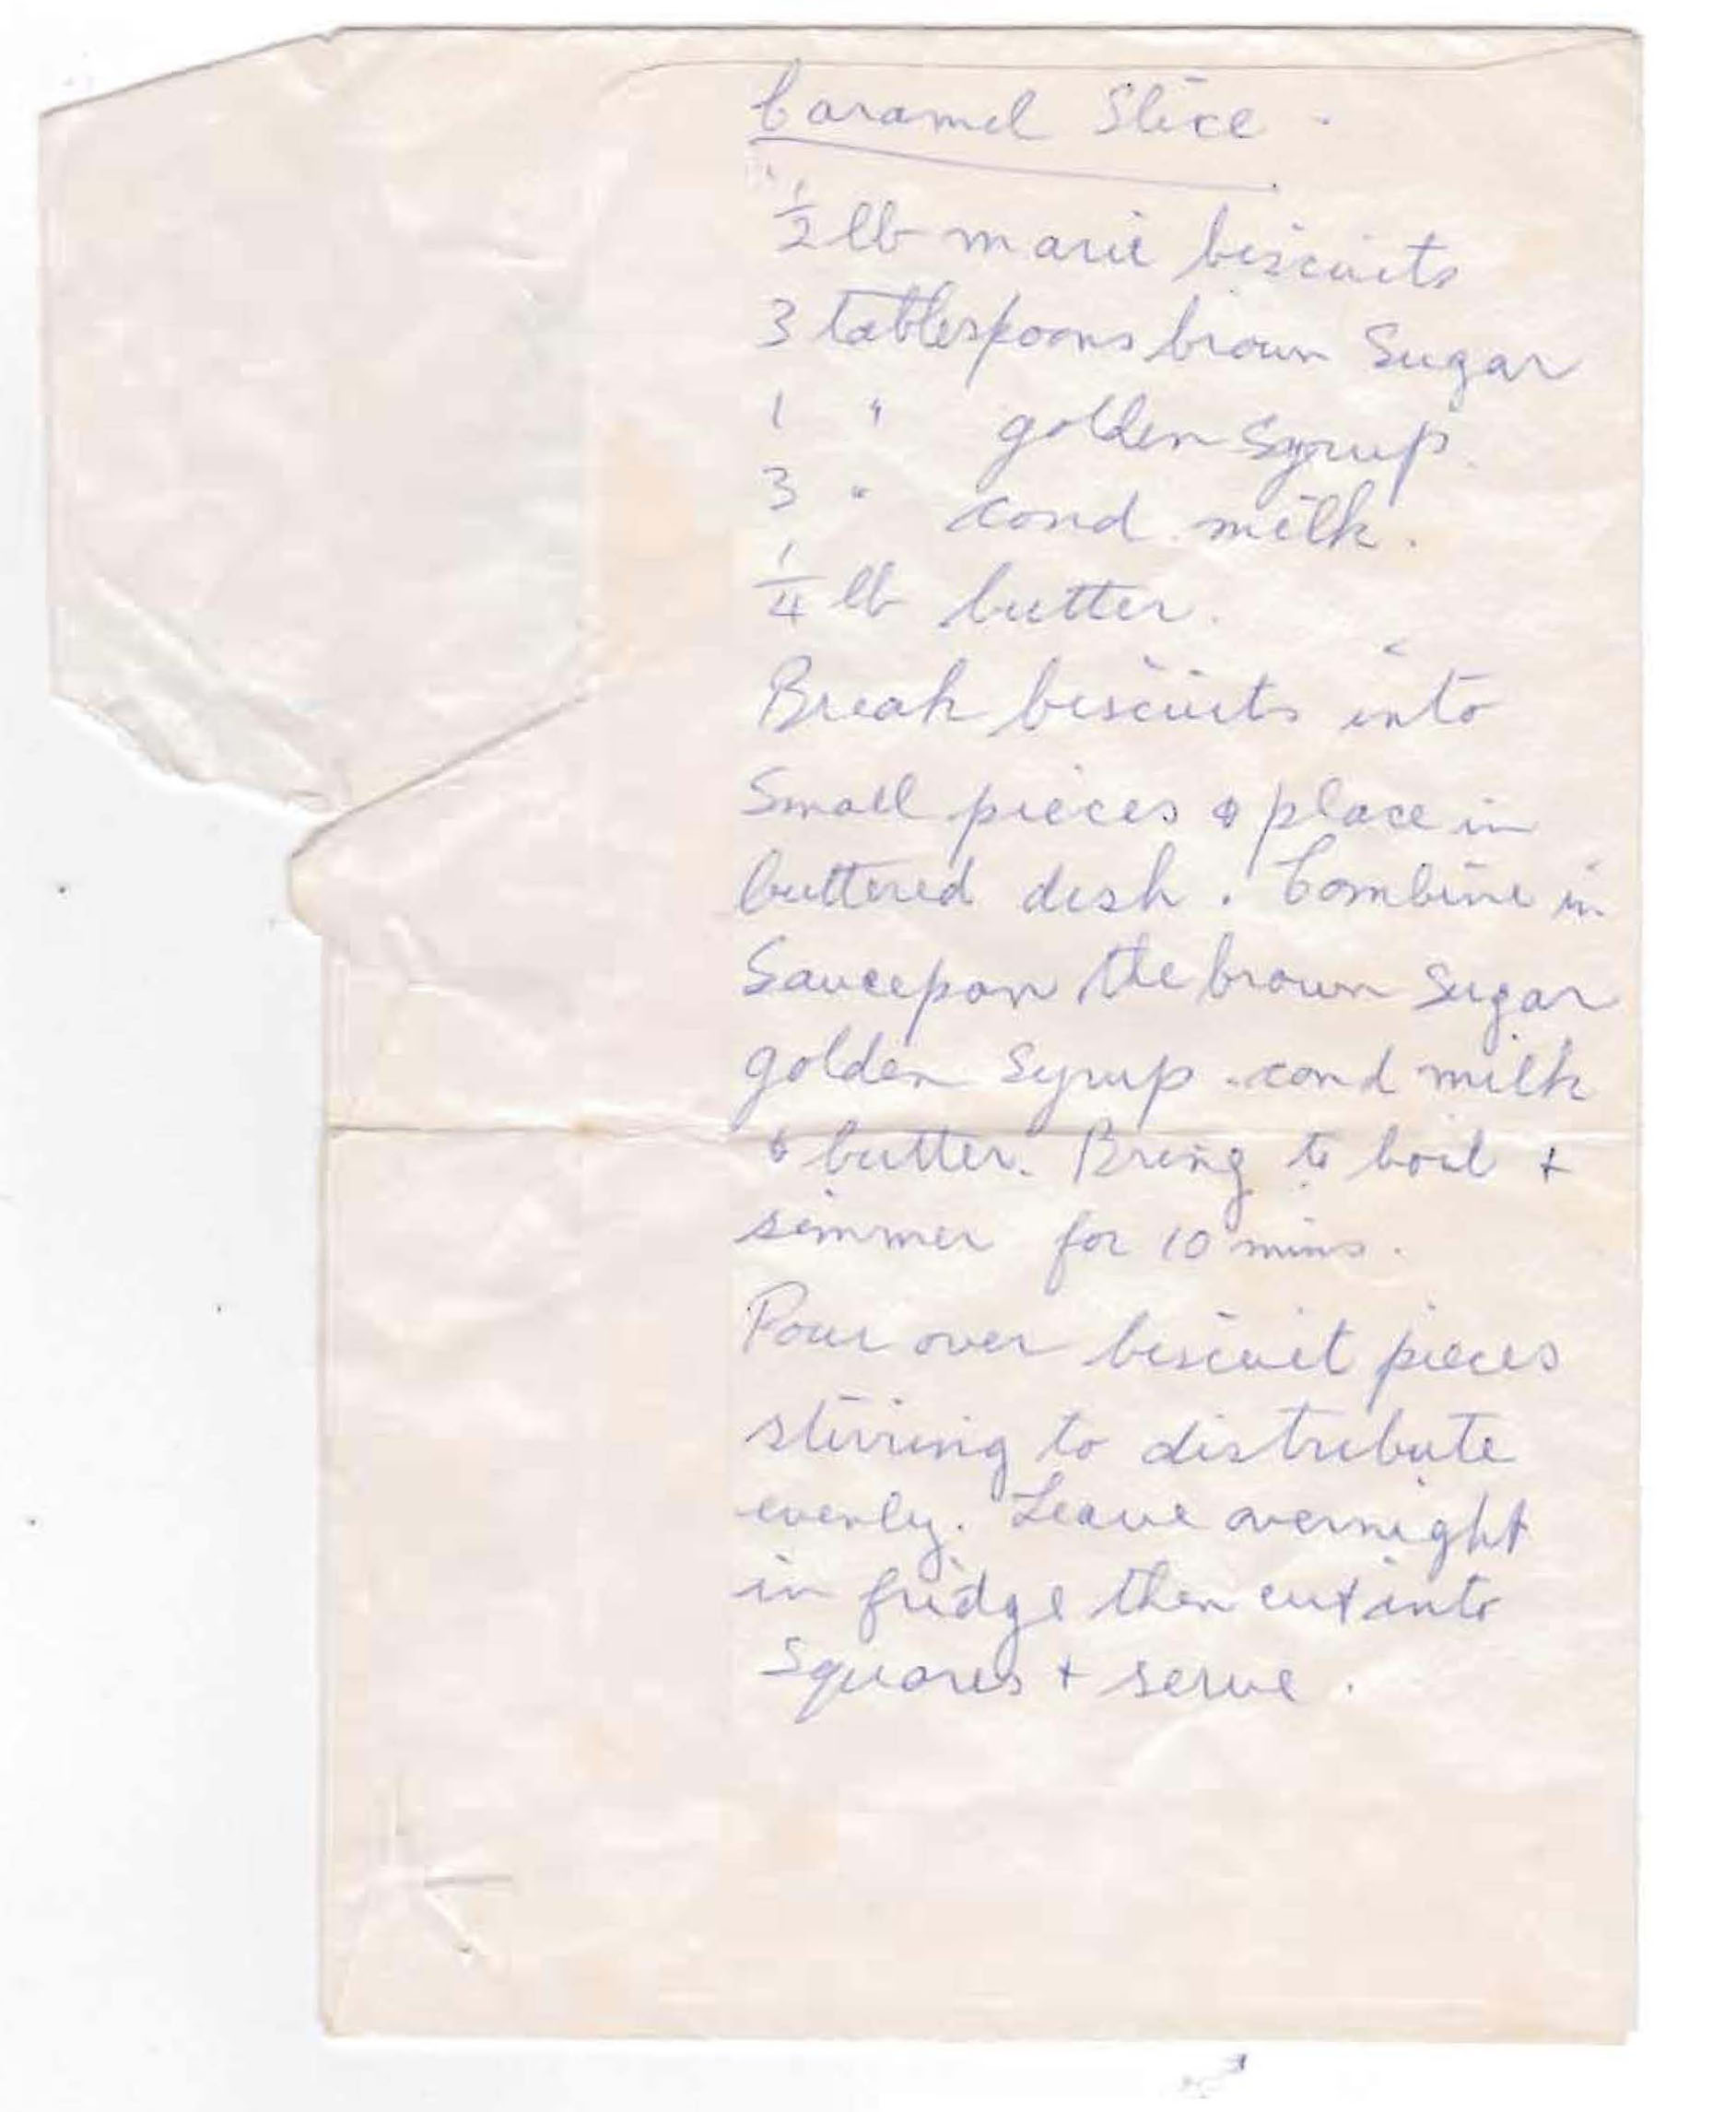 Caramel Slice.
½ lb marie biscuits
3 tablespoons brown Sugar
1 " golden Syrup.
3 " cond milk.
¼ lb butter.
Break biscuits into
Small pieces & place in
buttered dish. Combine in
Saucepan the brown Sugar
golden Syrup. cond milk
& butter. Bring to boil +
simmer for 10 mins.
Pour over biscuit pieces
stirring to distribute
evenly. Leave overnight
in fridge then cut into
Squares + serve.